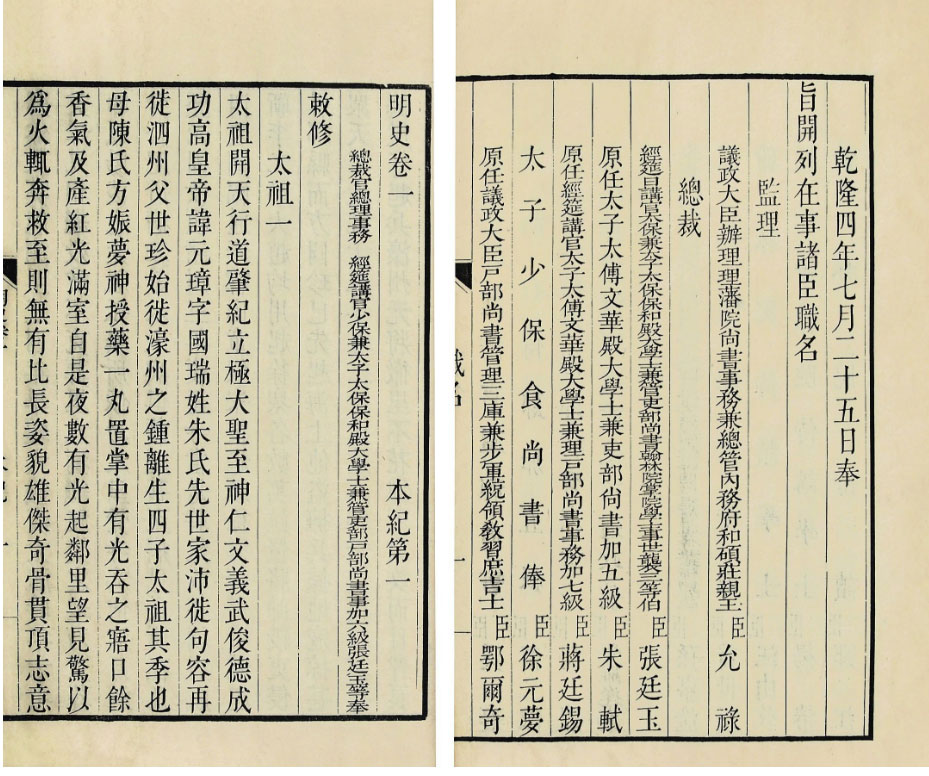 乾隆四年七月二十五日奉
旨開列在事諸臣職名
監理
議政大臣辦理理藩院尚書事務兼總管內務府和碩莊親王臣允祿
總裁
經筵日講官太保兼太子太保保和殿大學士兼管吏部尚書翰林院掌院學士事世襲三等伯臣張廷玉
原任太子太傅文華殿大學士兼吏部尚書加五級臣朱軾
原任經筵講官太子太傅文華殿大學士兼理戶部尚書事務加七級臣蔣廷錫
太子少保食尚書俸臣徐元夢
原任議政大臣戶部尚書管理三庫兼步軍統領教習庶吉士臣鄂爾奇
職名
一
明史卷一 本紀第一
總裁官總理事務 經筵講官少保兼太子太保保和殿大學士兼管吏部戶部尚書事加六級張廷玉等奉
敕修
太祖一
太祖開天行道肇紀立極大聖至神仁文義武俊德成
功高皇帝諱元璋字國瑞姓朱氏先世家沛徙句容再
徙泗州父世珍始徙濠州之鍾離生四子太祖其季也
母陳氏方娠夢神授藥一丸置掌中有光吞之寤口餘
香氣及產紅光滿室自是夜數有光起鄰里望見驚以
為火輒奔救至則無有比長姿貌雄傑奇骨貫頂志意